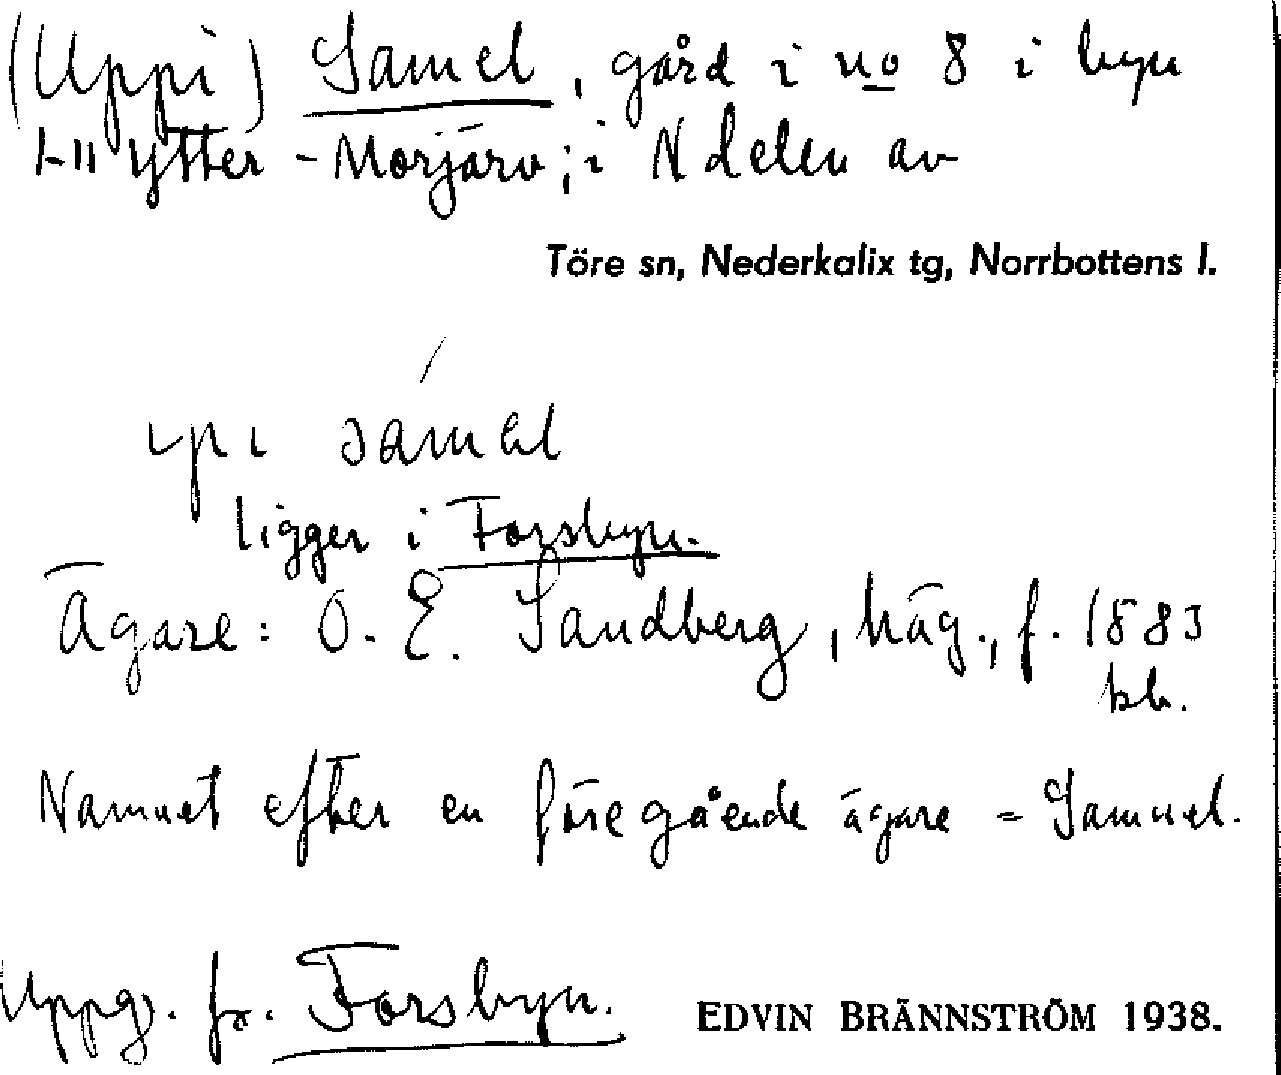 (Uppi) Samel, gård i no 8 i byn
1-11 Ytter-Morjärv; i N delen av
Töre sn, Nederkalix tg, Norrbottens l.
ligger i Forsbyn.
Ägare: O. E. Sandberg, häg., f. 1883
Namnet efter en föregående ägare = Samuel.
Uppg. fr. Forsbyn. EDVIN BRÄNNSTRÖM 1938.